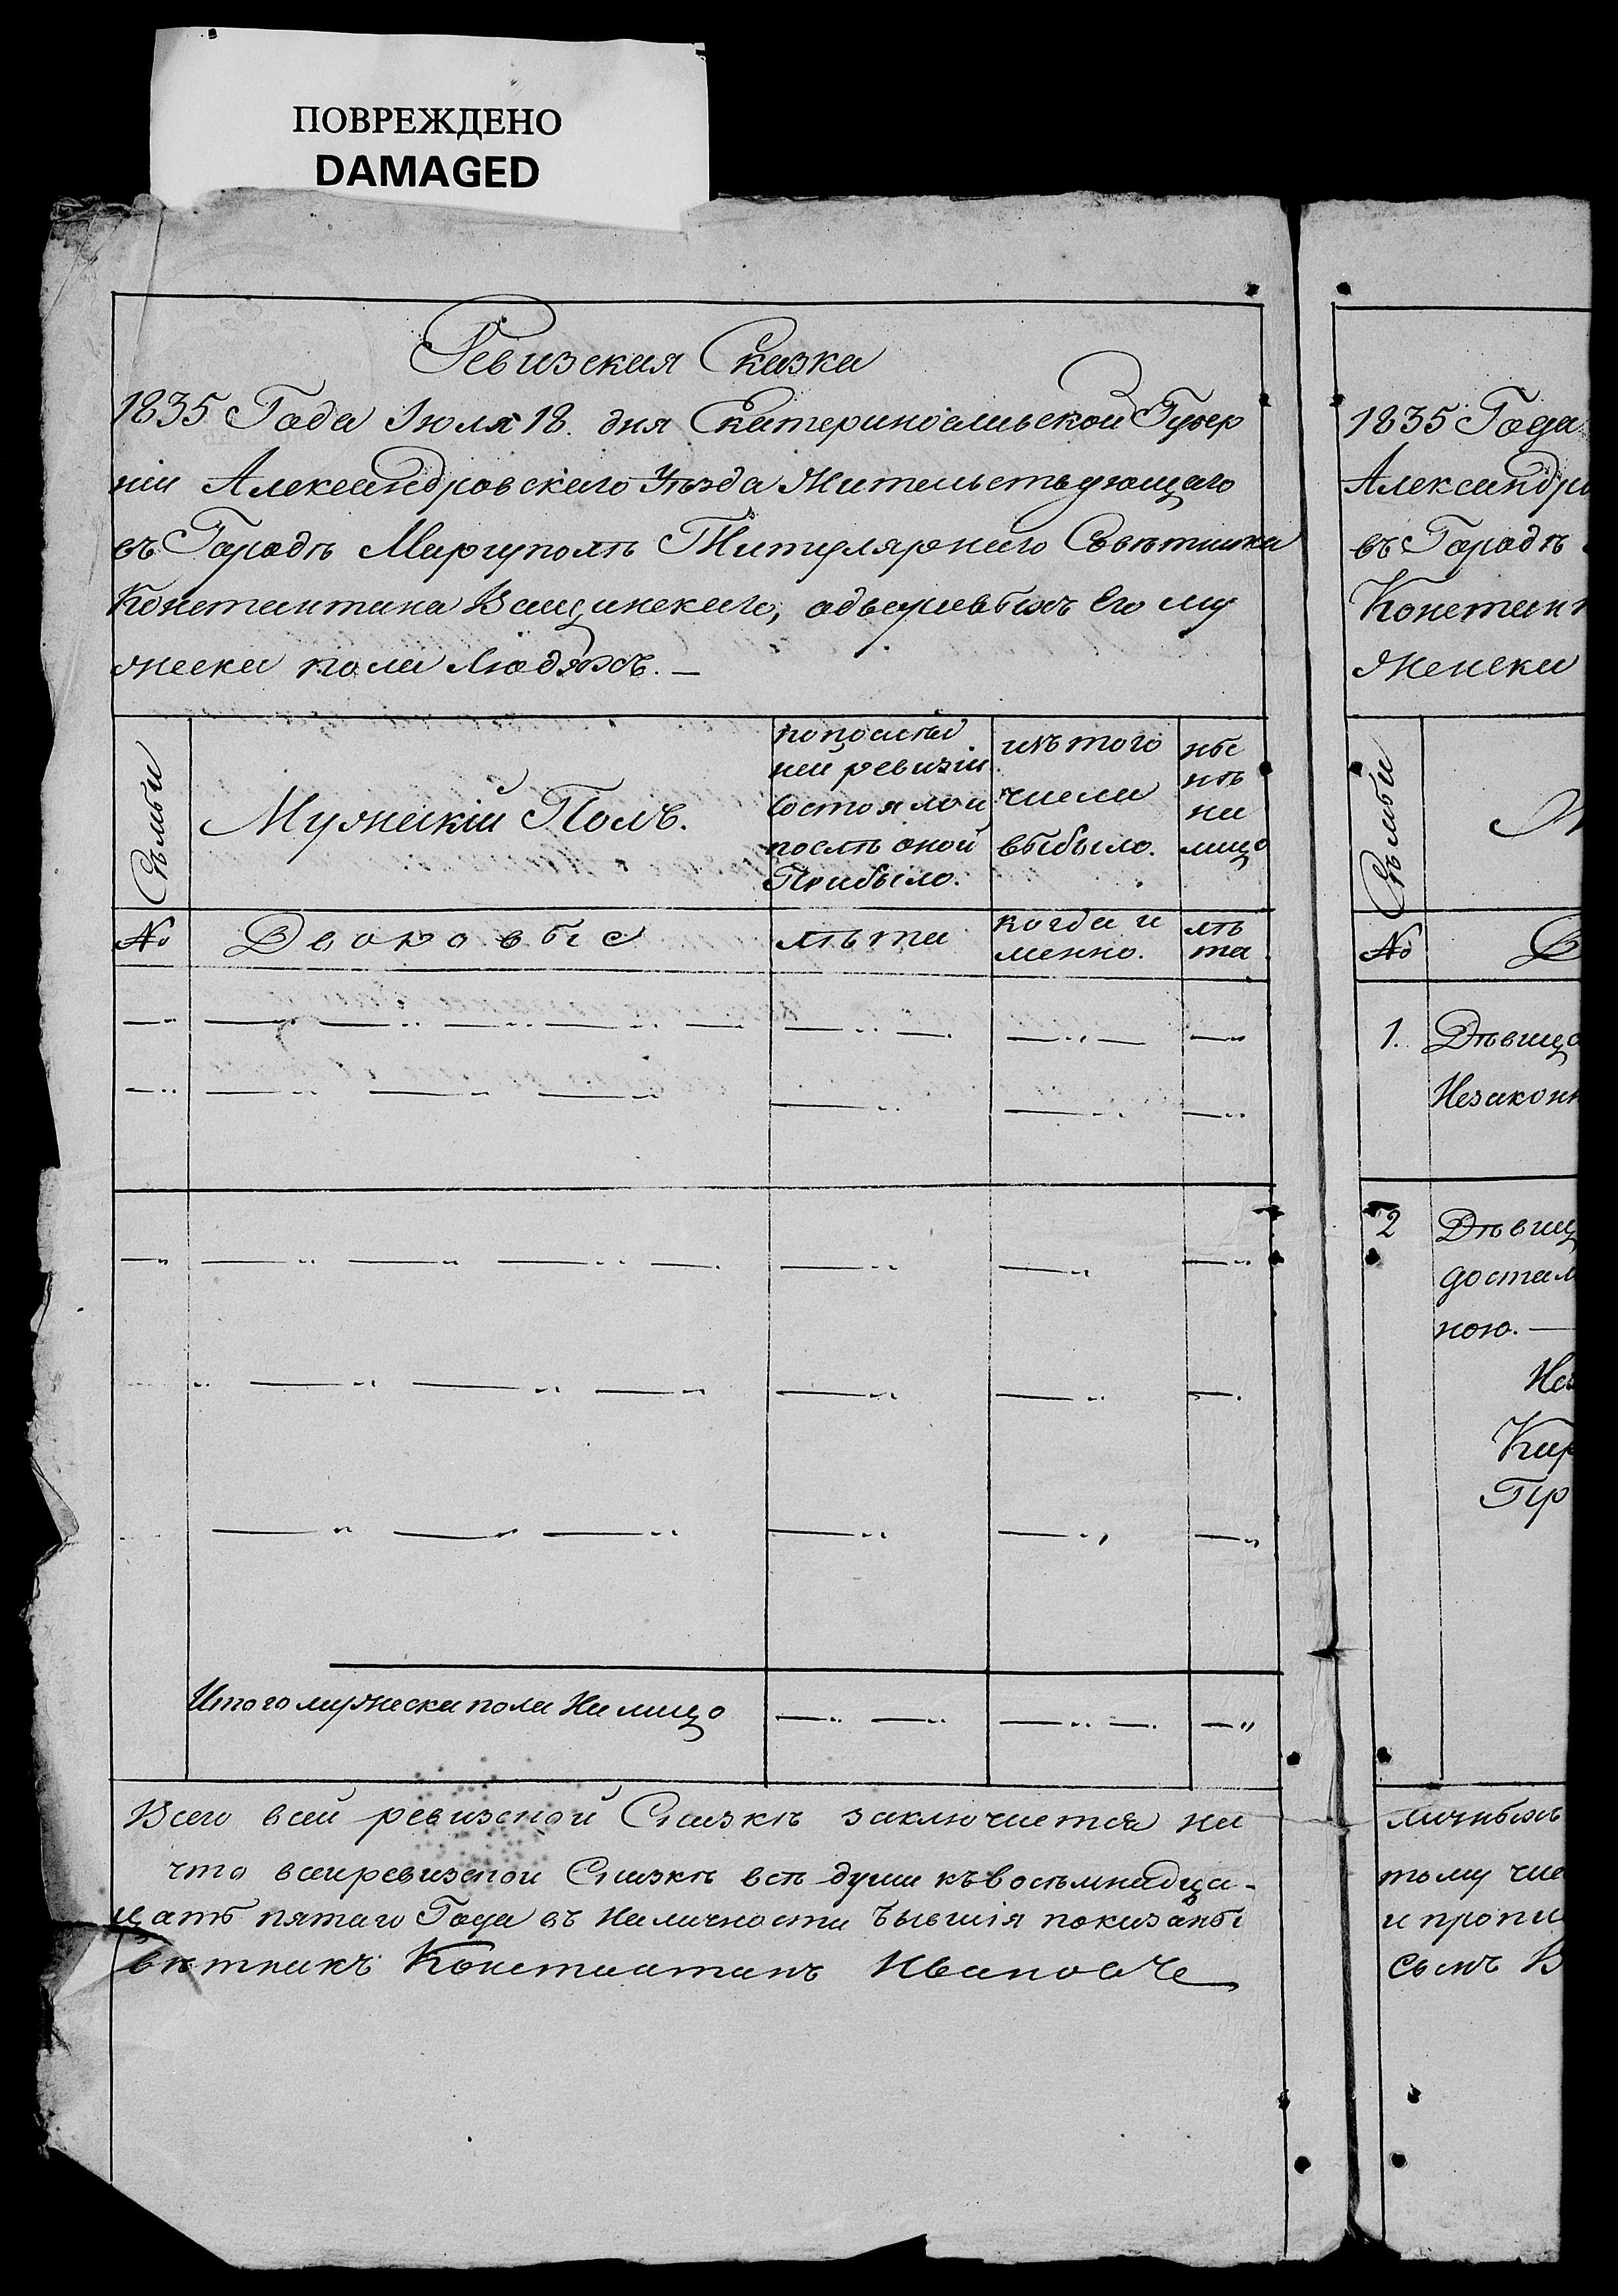 ПОВРЕЖДЕНО
DAMAGED
Ревизская Сказка
1835 Года Іюля 18. дня Екатеринославской Губер
ніи Александровскаго Уѣзда Жительствующаго
въ Городѣ Мариуполѣ Титулярнаго Совѣтника
Константина Ващинскаго, одворовыхъ Его му
жеска пола Людяхъ. —
Семьи
Мужескій Полъ.
попослѣд
ней ревизіи
Состояло и
послѣ оной
Прибыло.
изъ того
числа
выбыло.
ны
нѣ
на
лицо
№
Дворовые
лѣта
когда и
менно.
лѣ
та
Итого мужеска пола На лицо
Всего всей ревизской Сказкѣ заключается на
что всей ревизской Сказкѣ всѣ души къ восемнадца-
цать пятаго Года въ Наличности бывшія показаны
вѣтникъ Константинъ Ивановъ
1835 Года
Александро
въ Городѣ
Констант
женска
Семьи
М
№
Д
1. Дѣвица
Незаконн
2 Дѣвиц
достал
ною. —
Нез
Кир
Гр
личныхъ
тому чис
и пропи
сынъ В